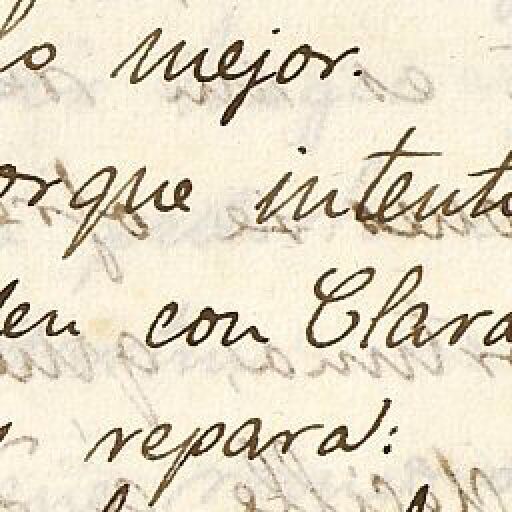 lo mejor.
orque intent
den con Clara
repara: